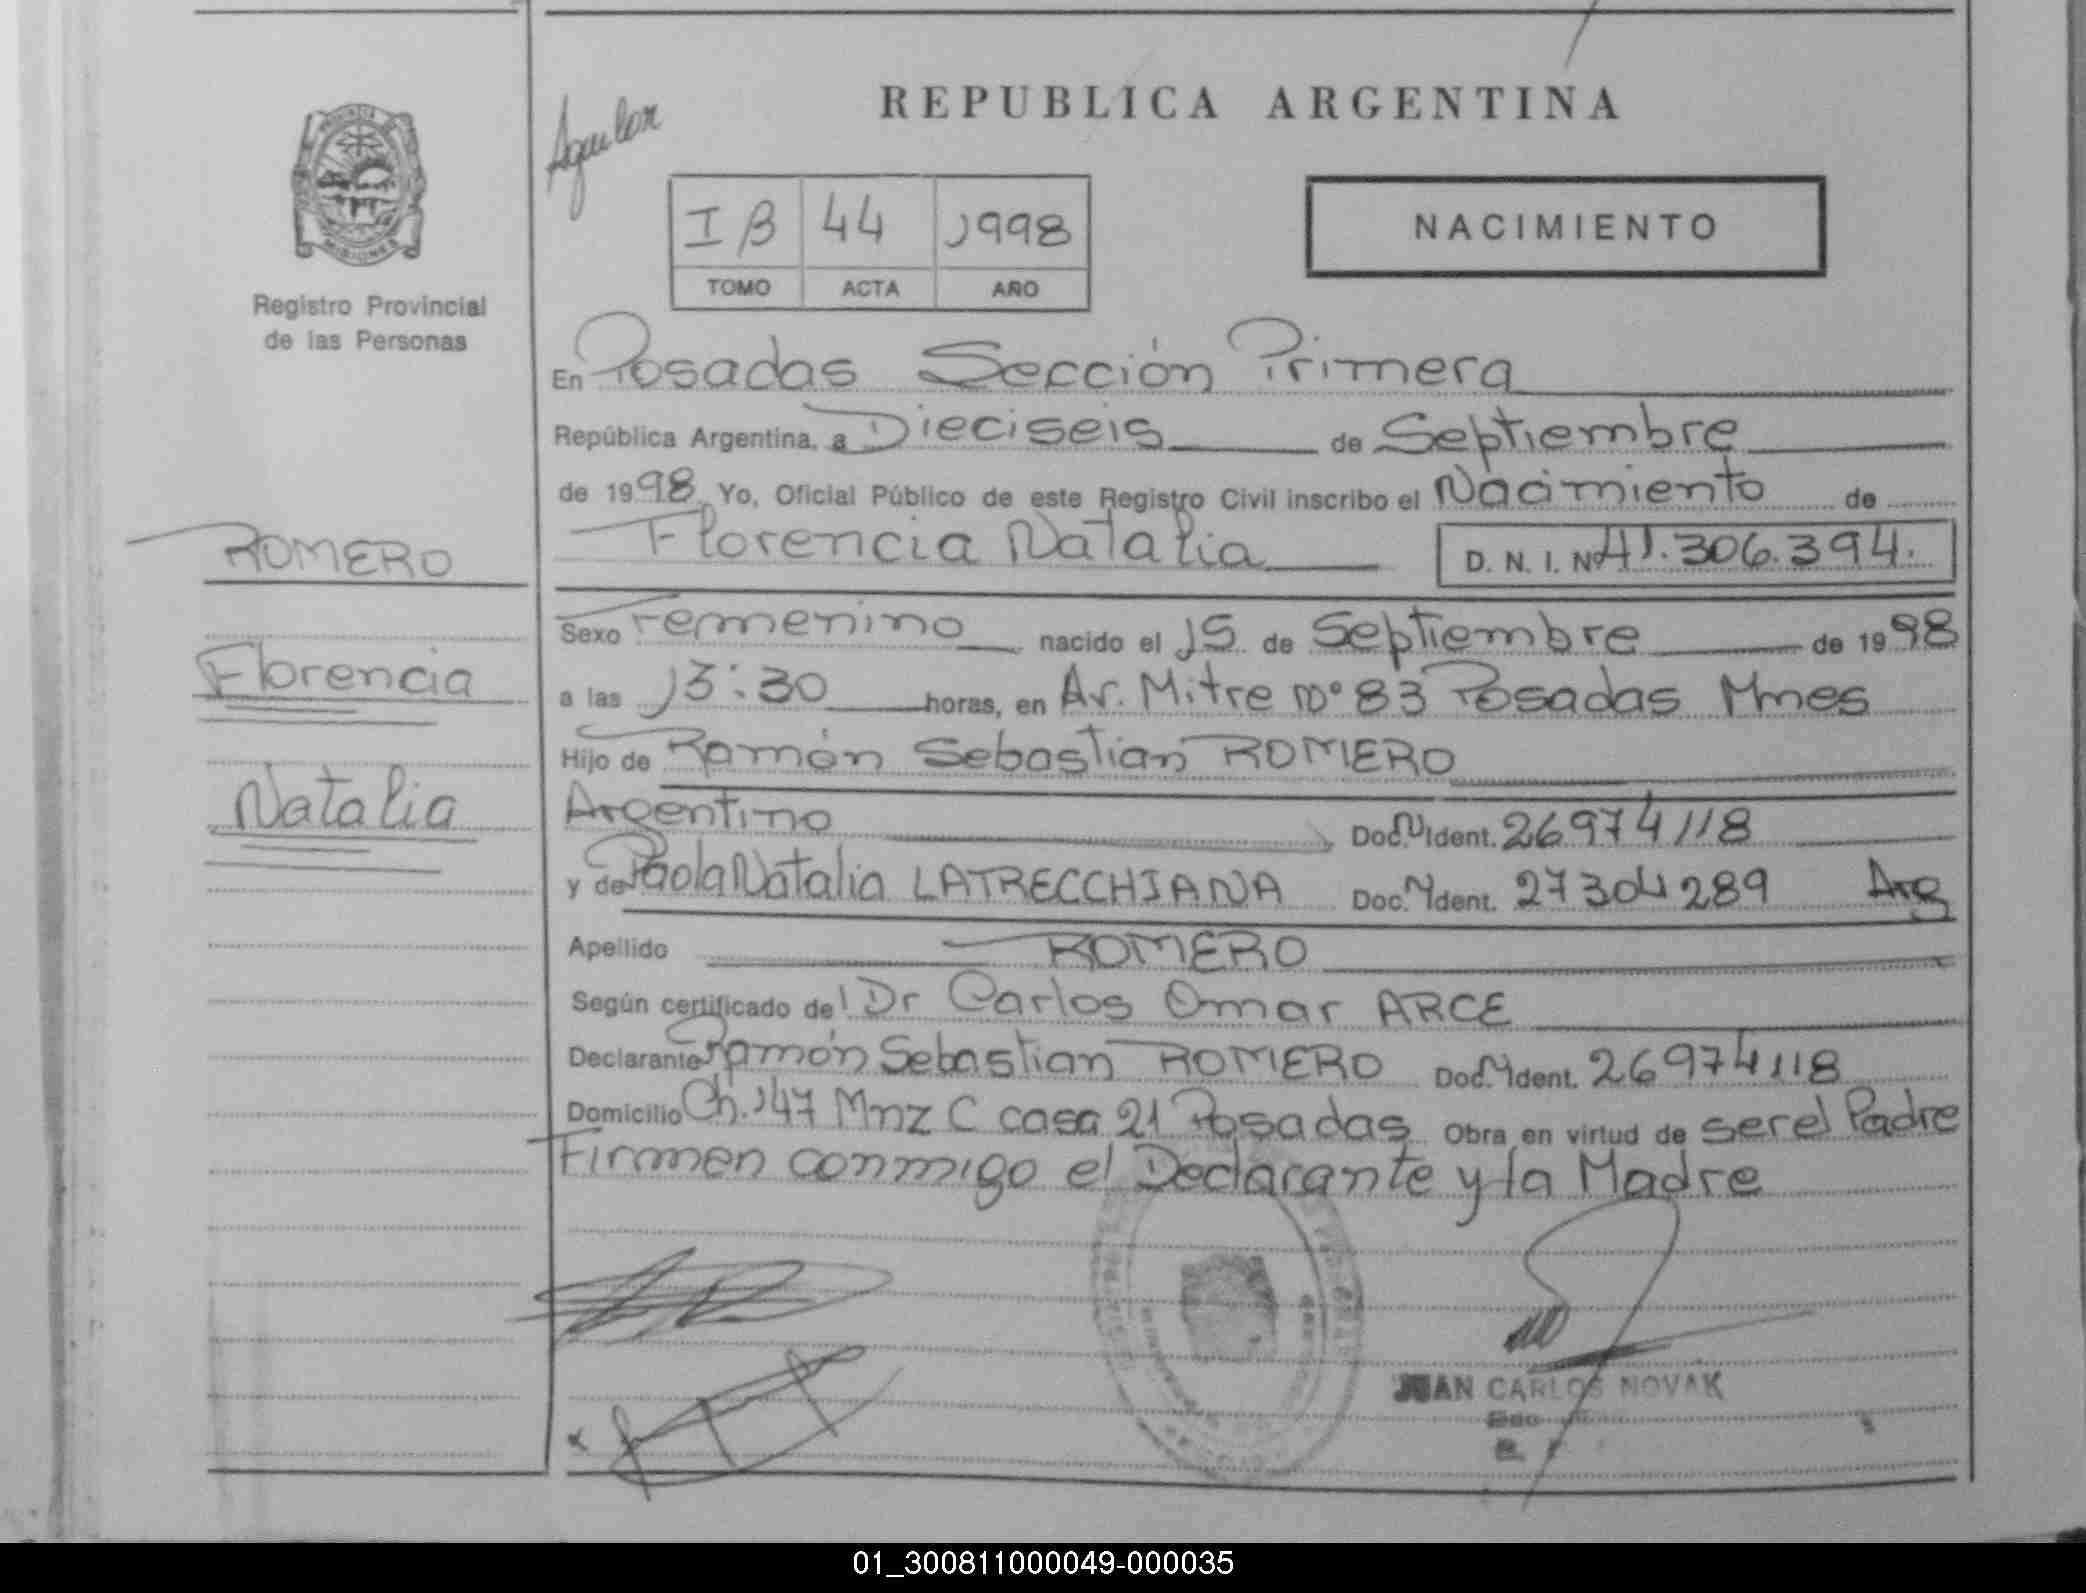 REPUBLICA ARGENTINA
Aguilar
I B 44 1998
TOMO ACTA AÑO
NACIMIENTO
MISIONES
Registro Provincial
de las Personas
ROMERO
Florencia
Natalia
En Posadas Sección Primera
República Argentina, a Dieciseis de Septiembre
de 1998 Yo, Oficial Público de este Registro Civil inscribo el Nacimiento de
Florencia Natalia D. N. I. Nº 41.306.394.
Sexo Femenino nacido el 15 de Septiembre de 1998
a las 13:30 horas, en Av. Mitre Nº 83 Posadas Mnes
Hijo de Ramón Sebastian ROMERO
Argentino Doc.N Ident. 26974118
y de Paola Natalia LATRECCHIANA Doc.N Ident. 27304289 Arg
Apellido ROMERO
Según certificado del Dr Carlos Omar ARCE
Declarante Ramón Sebastian ROMERO Doc.N Ident. 26974118
Domicilio Ch. 147 Mnz C casa 21 Posadas Obra en virtud de ser el Padre
Firmen conmigo el Declarante y la Madre
JUAN CARLOS NOVAK
01_300811000049-000035